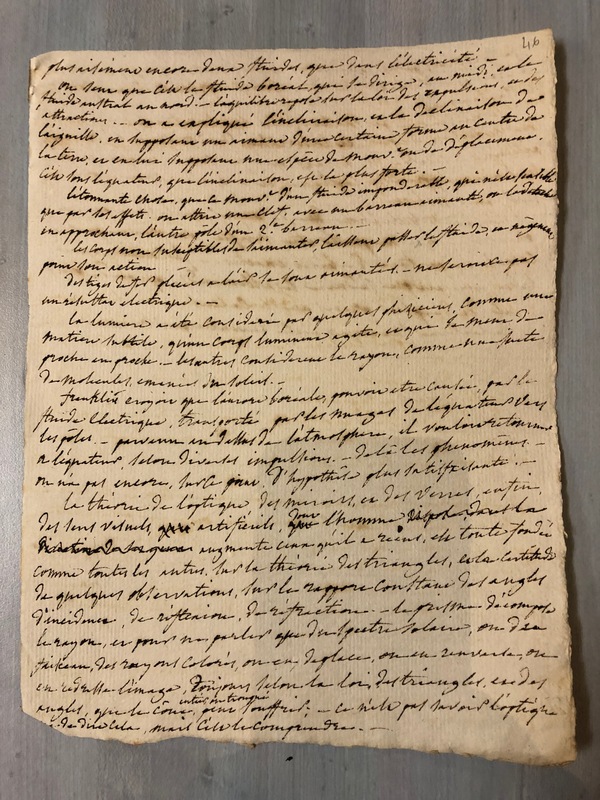 46
plus aisément encore deux fluides, que dans l'électricité
on sent que c'est le fluide boréal, qui se dirige, au midi, et le
fluide austral au nord. - l'équilibre repose sur la loi des répulsions, et des
attractions. - on a expliqué l'inclinaison, et la déclinaison de
l'aiguille, en supposant un aimant d'une certaine forme au centre de
la terre, et en lui supposant une espèce de mouv.t ou de déplacement.
C'est sous l'équateur, que l'inclinaison, est la plus forte. -
l'étonnante chose, que le mouv.t d'un fluide impondérable, qui n'est sensible
que par ses effets. on attire une clef, avec un barreau aimanté, on la
en approchant, l'autre pôle d'un 2.e barreau. -
les corps non susceptibles de s'aimanter laissent passer le fluide, en
pour son action
des tiges de fer se sont aimantés. - ne serait-ce pas
un résultat électrique. -
la lumière a été considéré par quelques phisiciens, comme une
matière subtile, qu'un corps lumineux agite, et qui se meut de
proche en proche. - les autres considèrent le rayon, comme une suite
de molécules, émanées du soleil. -
franklin croyoit que l'aurore boréale, pouvoit etre causée, par le
fluide électrique, transporté par les nuages de l'équateur vers
les pôles. - parvenu en dessus de l'atmosphère, il vouloit retourner
à l'équateur, selon diverses impulsions. - de là les phénomènes. -
on n'a pas encore, sur ce point, d'hypothèse plus satisfaisante. -
la théorie de l'optique, des miroirs, et des verres, enfin,
des sens visuels, artificiels, dont l'homme
augmente ceux qu'il a reçus, est toute fondée
comme toutes les autres, sur la théorie des triangles, et la certitude
de quelques observations, sur le rapport constant des angles
d'incidence, de réflexion, de réfraction. - le prisme décompose
le rayon, et pour ne parler que du spectre solaire, on des
faisceaux, des rayons colorés, on en déplace, on en renverse, on
en redresse l'image, toujours selon la loi, des triangles, et des
angles, que le cône, peut souffrir. - ce n'est pas savoir l'optique
que de dire cela, mais c'est le comprendre. -